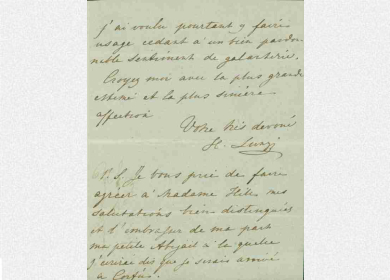 j'ai voulu pourtant y faire
usage cedant à un bien pardon-
nable sentiment de galanterie.
Croyez moi avec la plus grande
estime et la plus sincère
affection
Votre très devoué
P.S. Je vous prie de faire
agréer à Madame mes
salutations bien distinguées
et d'embrasser de ma part
ma petite Abigail à la quelle
j'écrirai dès que je serais arrivé
à Corfou.